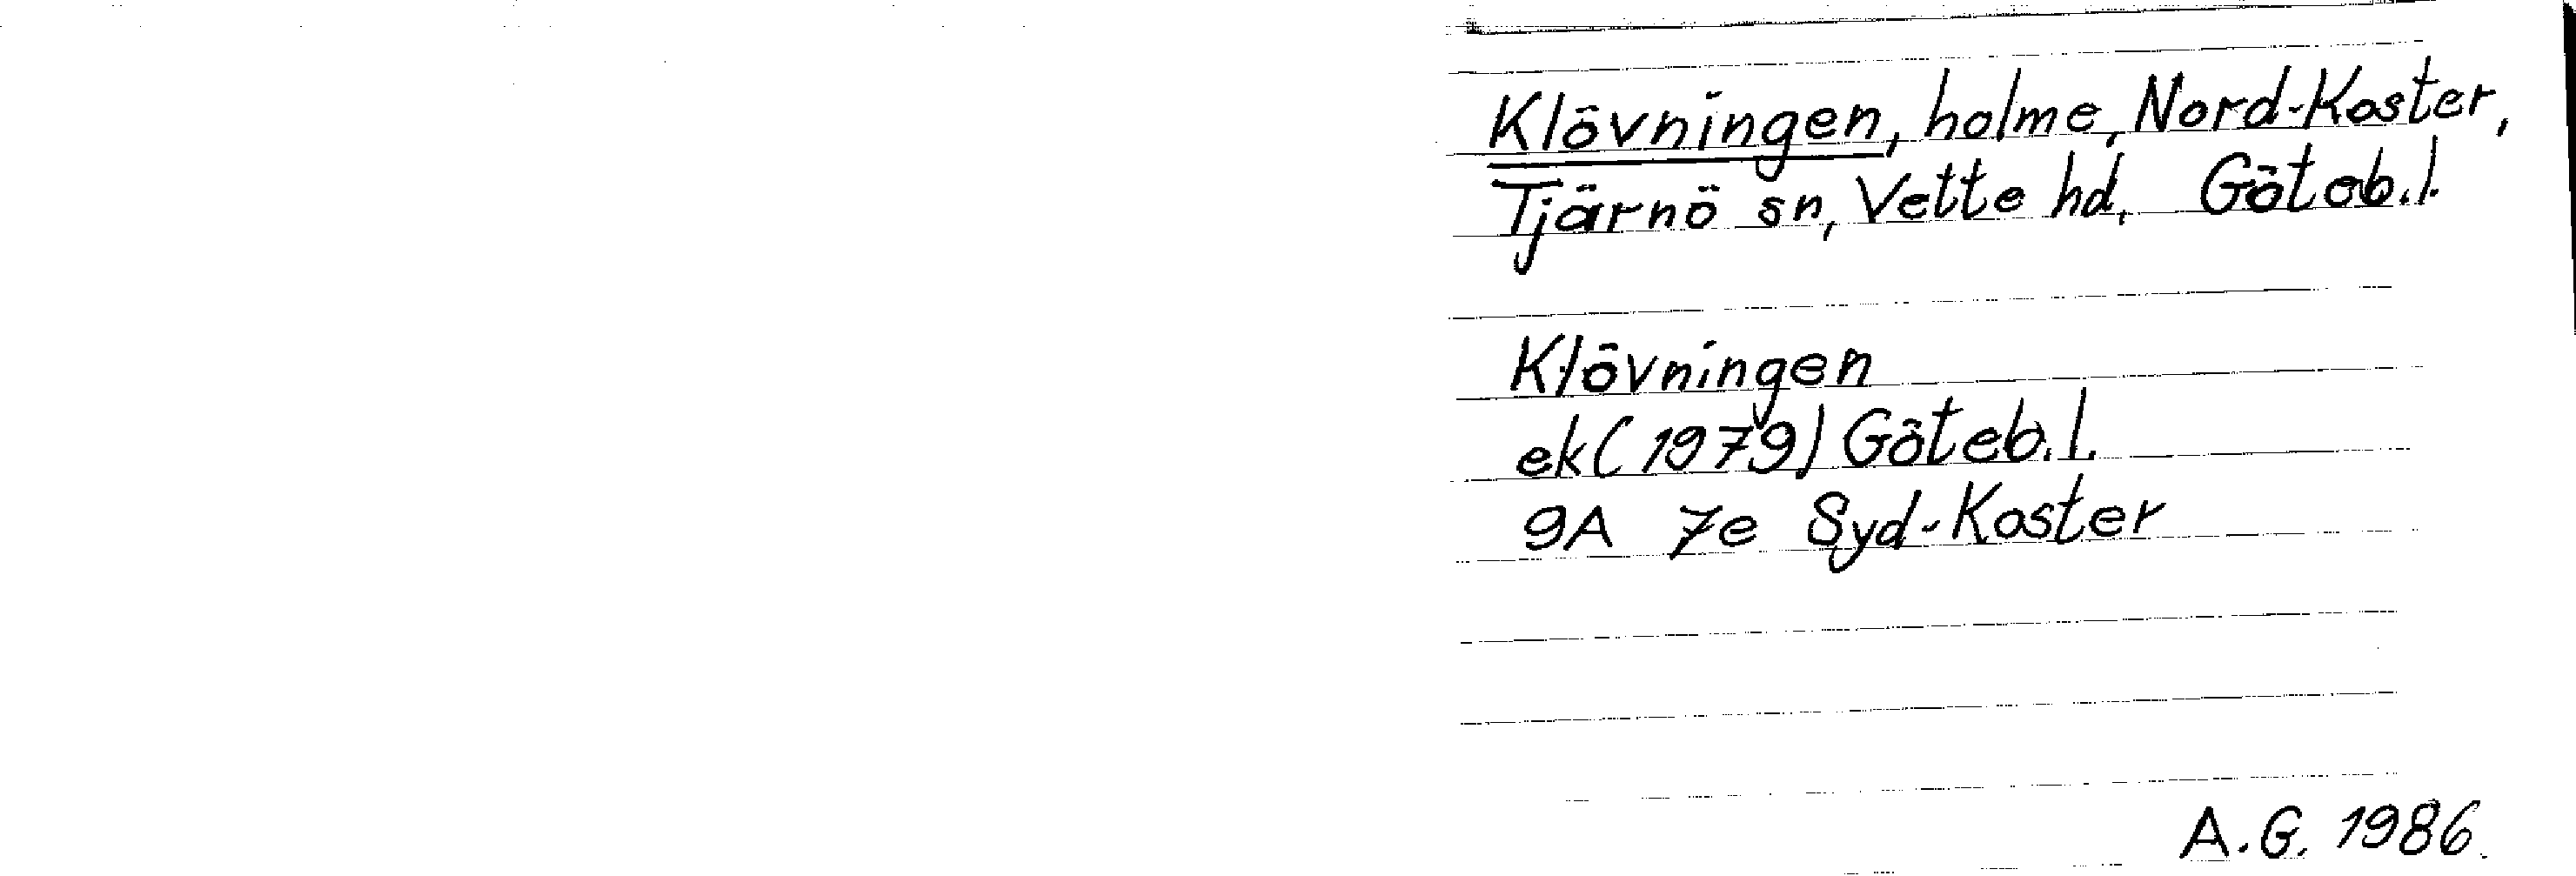 Klövningen, holme, Nord-Koster,
Tjärnö sn, Vette hd, Göteb.l.
Klövningen
ek (1979) Göteb.l.
9A 7e Syd-Koster
A.G. 1986.